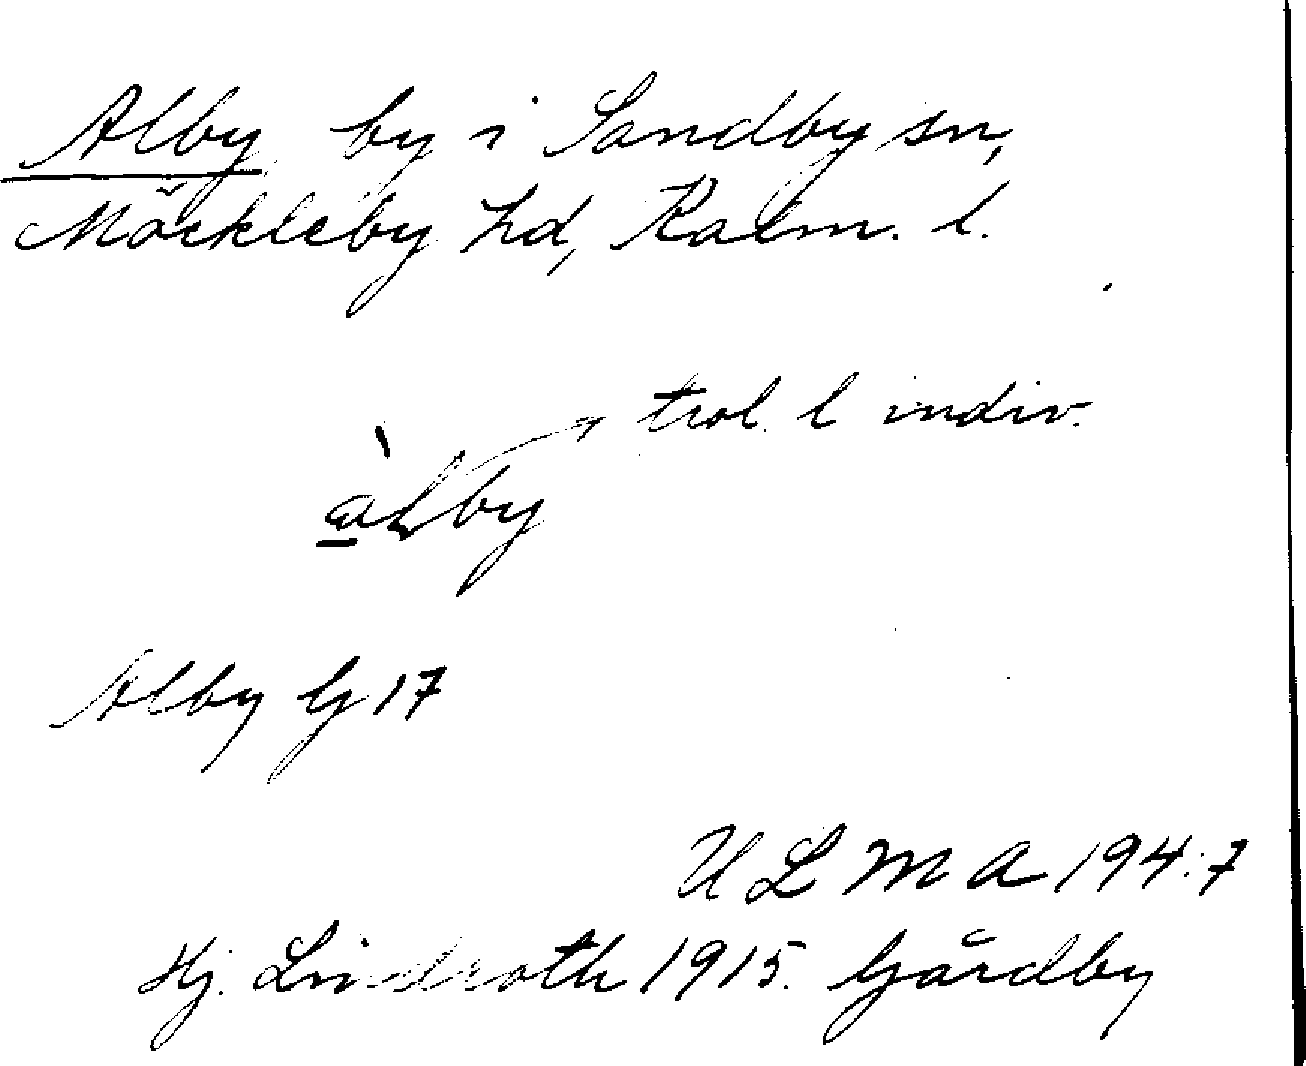 Alby by i Sandby sn,
Möckleby hd, Kalm. l.
trol. l indiv.
àLby
Alby G 17
ULMA 194:7
Hj. Lindroth 1915. Gårdby